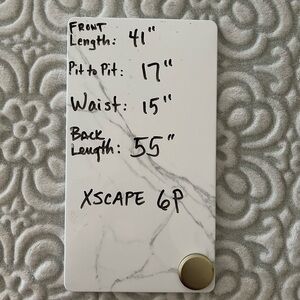 FRONT
Length: 41"
Pit to Pit: 17"
Waist: 15"
Back
Length: 55"
XSCAPE 6P